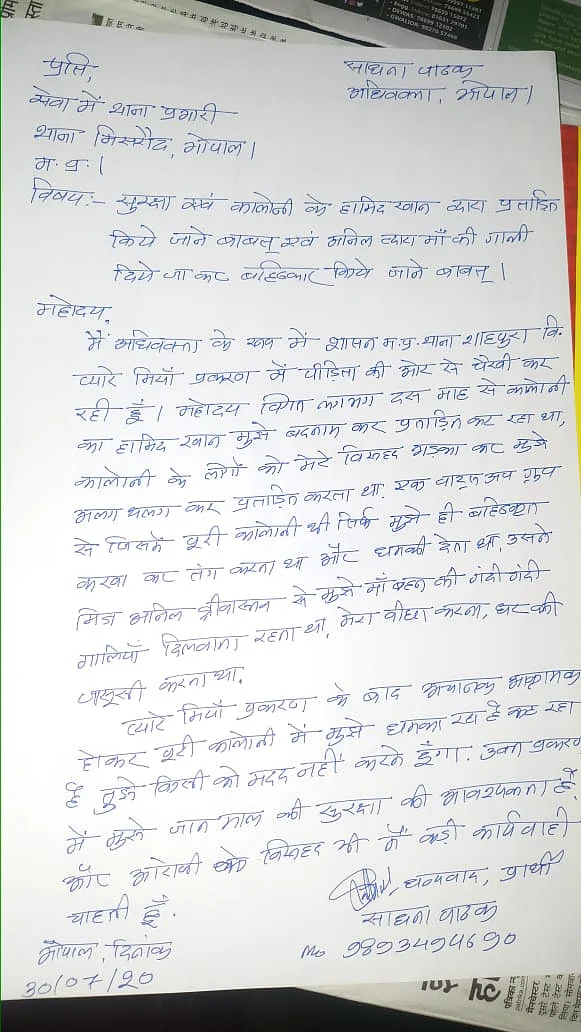 साधना पाठक
अधिवक्ता, भोपाल।
प्रति,
सेवा में थाना प्रभारी
थाना मिसरौद, भोपाल।
म. प्र.।
विषय:- सुरक्षा एवं कालोनी के हामिद खान द्वारा प्रताड़ित
किये जाने बाबत् एवं अनिल द्वारा माँ की गाली
दिये जा कर बहिष्कार किये जाने बाबत्।
महोदय,
मैं अधिवक्ता के रूप में शासन म.प्र. थाना शाहपुरा वि.
प्यारे मियाँ प्रकरण में पीड़िता की ओर से पैरवी कर
रही हूँ। महोदय विगत लगभग दस माह से कालोनी
का हामिद खान मुझे बदनाम कर प्रताड़ित कर रहा था,
कालोनी के लोगों को मेरे विरूद्ध भड़का कर मुझे
अलग थलग कर प्रताड़ित करता था. एक वाट्स अप ग्रुप
से जिसमें पूरी कालोनी थी सिर्फ मुझे ही बहिष्कृत
करवा कर तंग करता था और धमकी देता था, उसने
मित्र अनिल श्रीवास्तव से मुझे माँ बहन की गंदी गंदी
गालियाँ दिलवाता रहता था, मेरा पीछा करना, घर की
जासूसी करता था.
प्यारे मियाँ प्रकरण के बाद अचानक आक्रामक
होकर पूरी कालोनी में मुझे धमका रहा है कह रहा
है तुझे किसी को मदद नहीं करने दूँगा. उक्त प्रकरण
में मुझे जान माल की सुरक्षा की आवश्यकता है.
और आरोपी के विरूद्ध भी मैं कड़ी कार्यवाही
चाहती हूँ.
धन्यवाद, प्रार्थी
साधना पाठक
Mo 9893494690
भोपाल, दिनांक
30/07/20